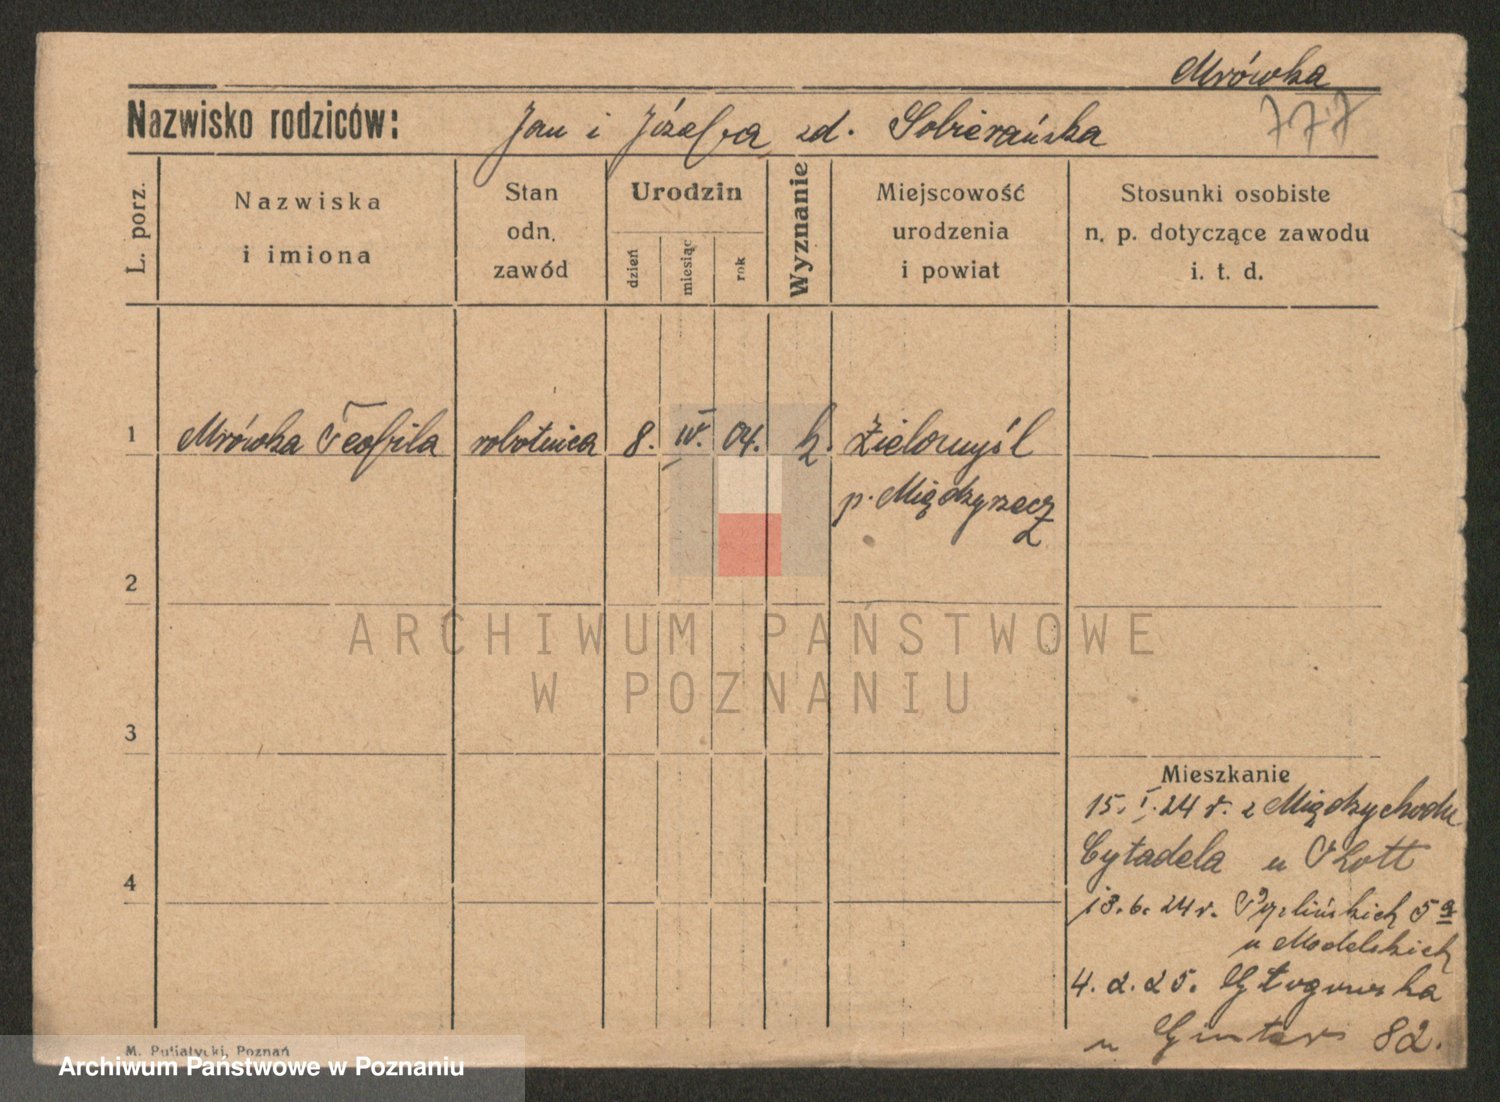 Mrówka
Nazwisko rodziców: Jan i Józefa zd. Sobierańska
777
L. porz.
Nazwiska
i imiona
Stan
odn.
zawód
Urodzin
dzień
miesiąc
rok
Wyznanie
Miejscowość
urodzenia
i powiat
Stosunki osobiste
n. p. dotyczące zawodu
i. t. d.
1 Mrówka Teofila robotnica 8. IV. 04. k. Zielomyśl
p. Międzyrzecz
2
ARCHIWUM PAŃSTWOWE
W POZNANIU
3
Mieszkanie
15. I. 24 r. z Międzychodu
Cytadela u
4
13. 6. 24 r. 5a
u Modelskich
4. 2. 25. Głogowska
u 82.
M. Putiatycki, Poznań
Archiwum Państwowe w Poznaniu